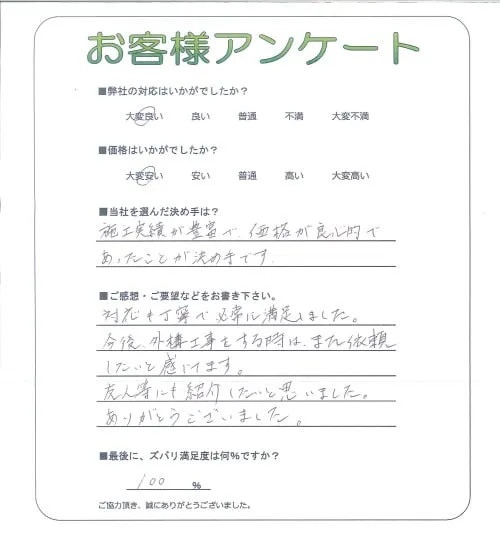 お客様アンケート
■弊社の対応はいかがでしたか？
大変良い 良い 普通 不満 大変不満
■価格はいかがでしたか？
大変安い 安い 普通 高い 大変高い
■当社を選んだ決め手は？
施工実績が豊富で、価格が良心的で
あったことが決め手です。
■ご感想・ご要望などをお書き下さい。
対応も丁寧で非常に満足しました。
今後、外構工事をする時は、また依頼
したいと感じてます。
友人等にも紹介したいと思いました。
ありがとうございました。
■最後に、ズバリ満足度は何％ですか？
100 ％
ご協力頂き、誠にありがとうございました。